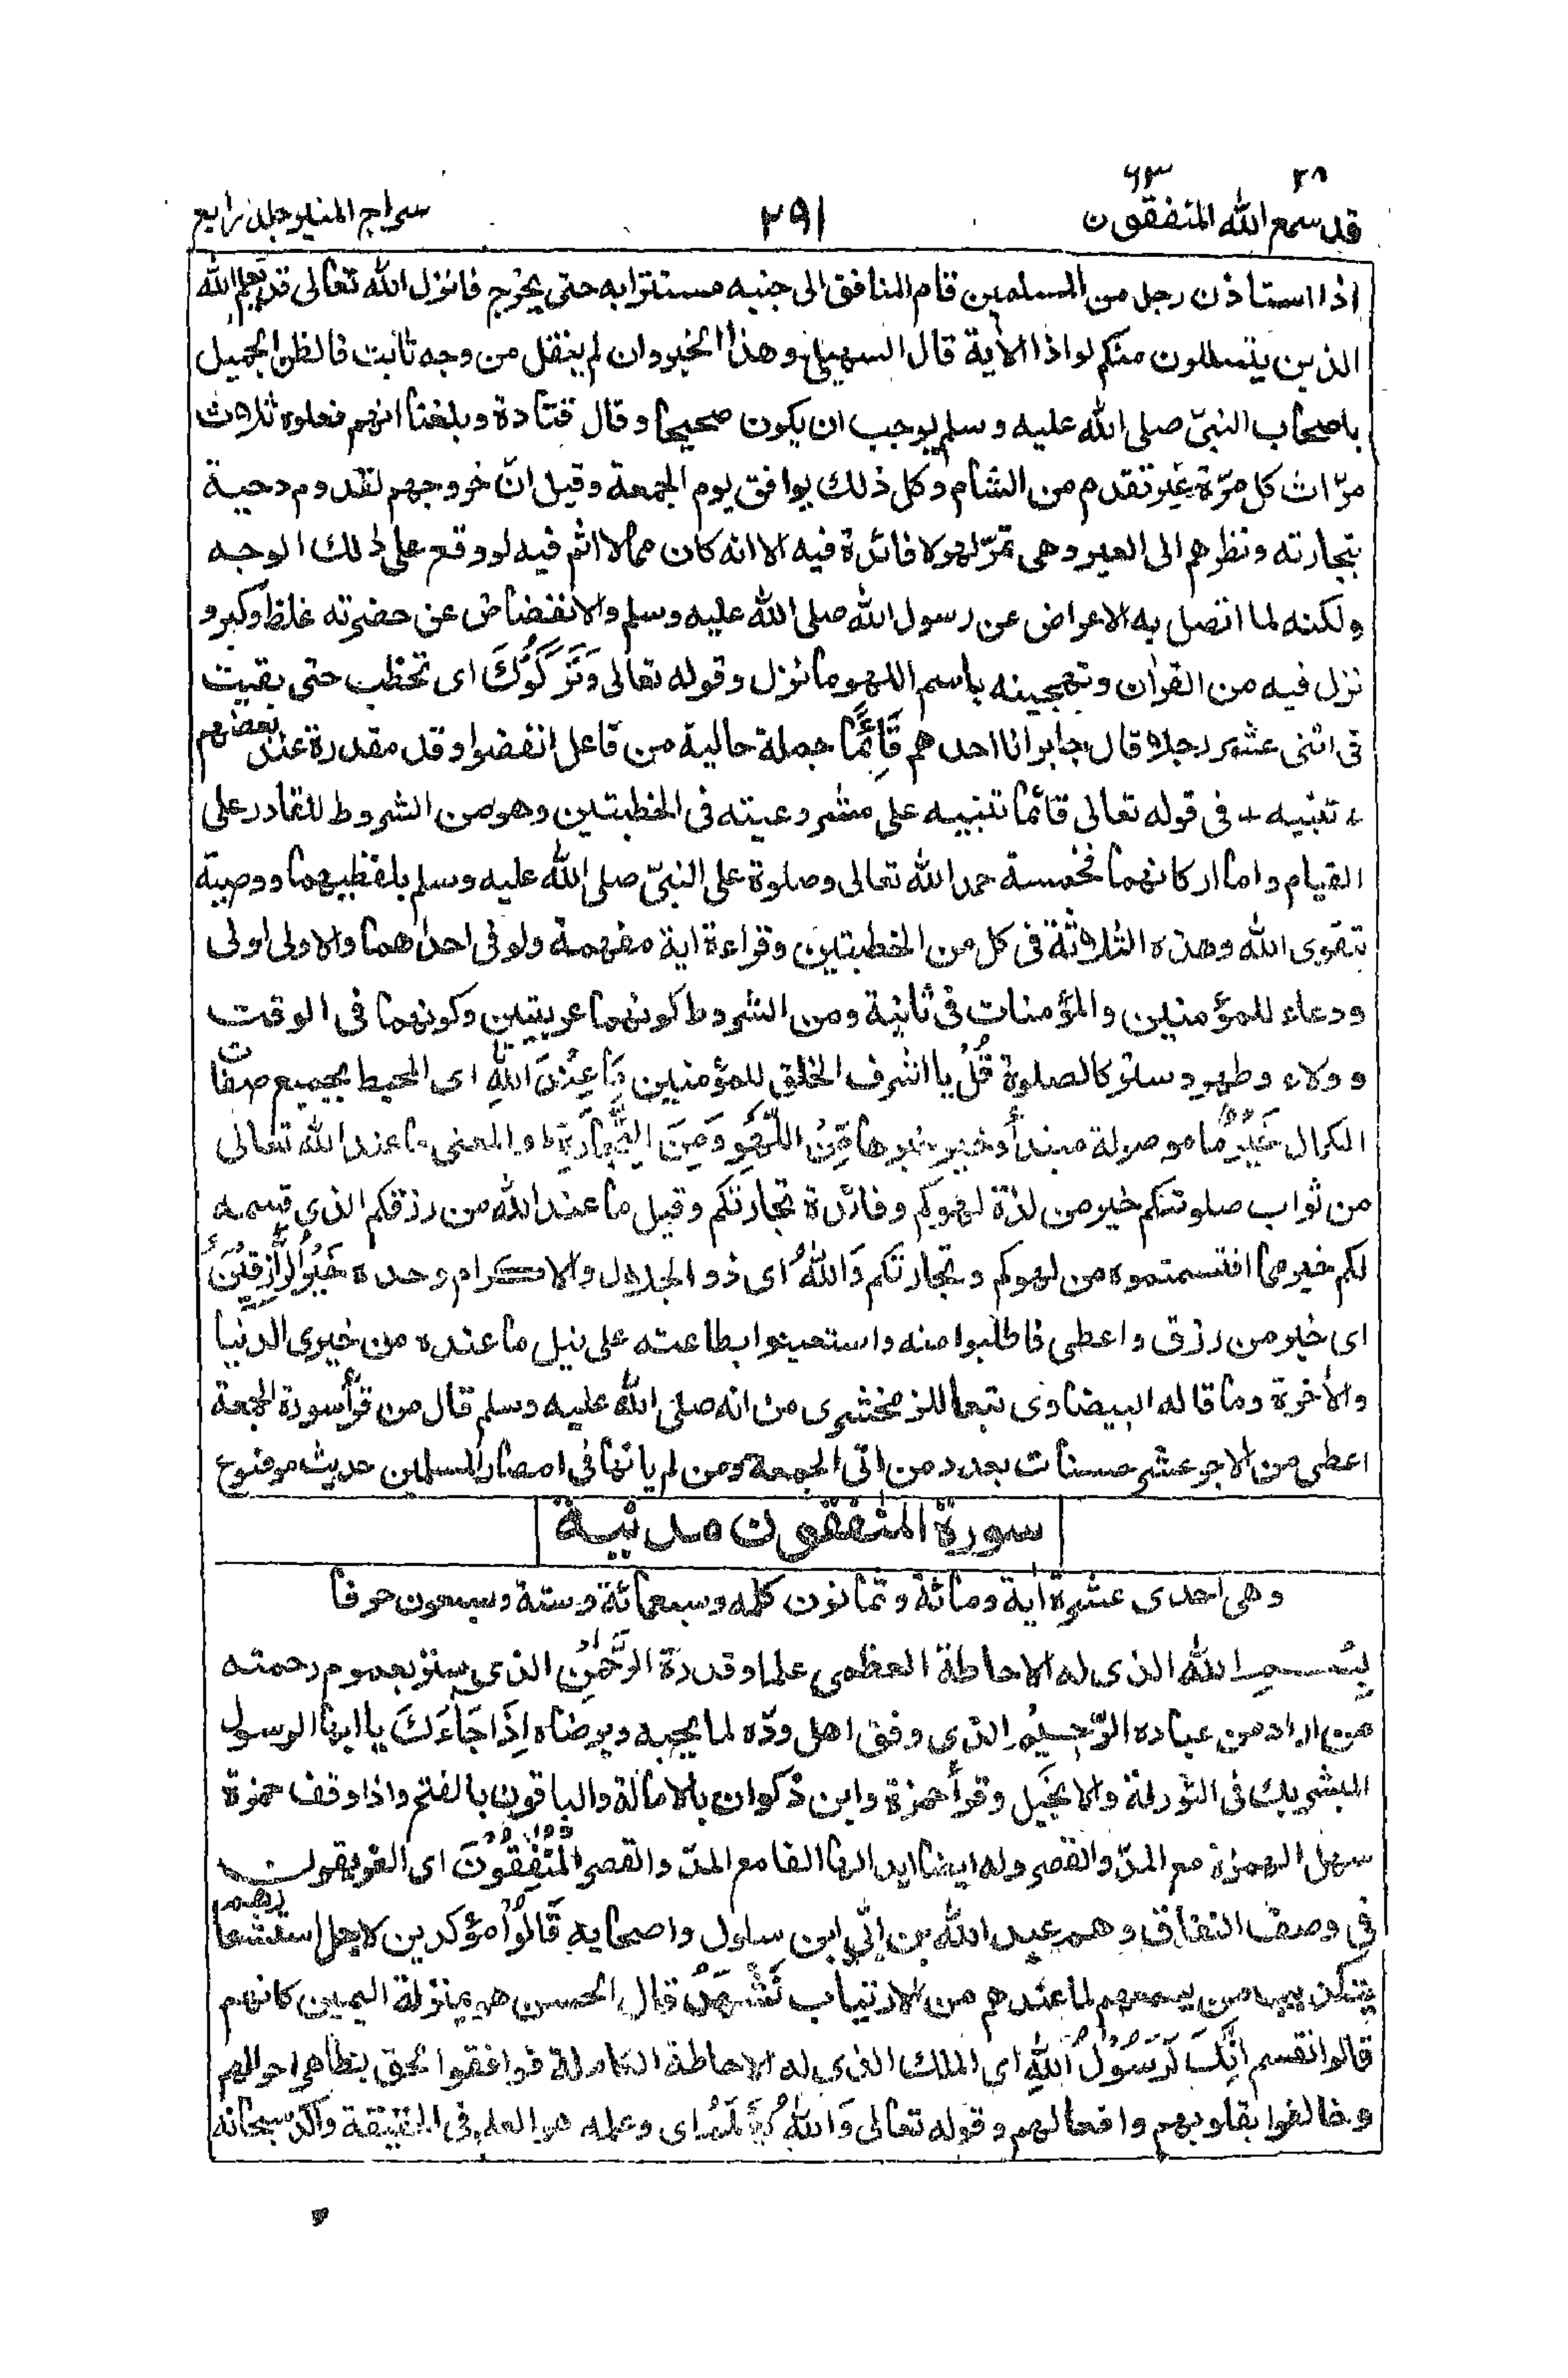 ٢٨ ٦٣
قد سمع الله المنفقون ٢٩١ سراج المنير جلد رابع
اذا استاذن رجل من المسلمين قام المنافق الى جنبه مستترا به حتى يخرج فانزل الله تعالى قد يعلم الله
الذين يتسللون منكم لواذا الآية قال السهيلى وهذا الخبر وان لم ينقل من وجه ثابت فالظن الجميل
باصحاب النبىّ صلى الله عليه وسلم يوجب ان يكون صحيحا وقال قتادة وبلغنا انهم فعلوه ثلاث
مرّات كل مرّة بعير تقدم من الشام وكل ذلك يوافق يوم الجمعة وقيل انّ خروجهم لقدوم دحية
بتجارته ونظرهم الى العير وهى تمرّ لهو لا فائدة فيه الا انه كان مما لا اثم فيه لو وقع على ذلك الوجه
ولكنه لما اتصل به الاعراض عن رسول الله صلى الله عليه وسلم والانفضاض عن حضرته غلظ وكبر و
نزل فيه من القرآن وتهجينه باسم اللهو ما نزل وقوله تعالى وَتَرَكُوْكَ اى تخطب حتى بقيت
فى اثنى عشر رجلا قال جابر انا احدهم قَآئِمًا جملة حالية من فاعل انفضوا وقد مقدرة عند بعضهم
* تنبيه * فى قوله تعالى قائما تنبيه على مشروعيته فى الخطبتين وهو من الشروط للقادر على
القيام واما اركانهما فخمسة حمد الله تعالى وصلوة على النبىّ صلى الله عليه وسلم بلفظيهما ووصية
بتقوى الله وهذه الثلاثة فى كل من الخطبتين وقراءة اية مفهمة ولو فى احداهما والاولى اولى
ودعاء للمؤمنين والمؤمنات فى ثانية ومن الشروط كونهما عربيتين وكونهما فى الوقت
وولاء وطهر وستر كالصلوة قُلْ يا اشرف الخلق للمؤمنين مَا عِنْدَ اللّٰهِ اى المحيط بجميع صفات
الكمال خَيْرٌ ما موصولة مبتدأ وخير خبرها مِّنَ اللَّهْوِ وَمِنَ التِّجَارَةِ ط والمعنى ما عند الله تعالى
من ثواب صلوتكم خير من لذة لهوكم وفائدة تجارتكم وقيل ما عند الله من رزقكم الذى قسمه
لكم خير مما اقتسمتموه من لهوكم وتجارتكم وَاللّٰهُ اى ذو الجلال والاكرام وحده خَيْرُ الرَّازِقِيْنَ
اى خير من رزق واعطى فاطلبوا منه واستعينوا بطاعته على نيل ما عنده من خيرى الدنيا
والآخرة وما قاله البيضاوى تبعا للزمخشرى من انه صلى الله عليه وسلم قال من قرأ سورة الجمعة
اعطى من الاجر عشر حسنات بعدد من اتى الجمعة ومن لم ياتها فى امصار المسلمين حديث موضوع
سورة المنفقون مدنية
وهى احدى عشرة اية ومائة وثمانون كلمه وسبعمائة وستة وسبعون حرفا
بِسْمِ الله الذى له الاحاطة العظمى علما وقدرة الرَّحْمٰنِ الذى ستر بعموم رحمته
من اراد من عباده الرَّحِيْمِ الذى وفق اهل ودّه لما يحبه ويرضاه اِذَا جَآءَكَ يا ايها الرسول
المبشر بك فى التورٰىة والانجيل وقرأ حمزة وابن ذكوان بالامالة والباقون بالفتح واذا وقف حمزة
سهل الهمزة مع المدّ والقصر وله ايضا ابدالها الفا مع المدّ والقصر الْمُنٰفِقُوْنَ اى الغريقون
فى وصف النفاق وهم عبد الله بن ابىّ ابن سلول واصحابه قَالُوْا مؤكدين لاجل استشعارهم
بتكذيب من يسمعهم لما عندهم من الارتياب نَشْهَدُ قال الحسن هى بمنزلة اليمين كانهم
قالوا نقسم اِنَّكَ لَرَسُوْلُ اللّٰهِ اى الملك الذى له الاحاطة الكاملة فوافقوا الحق بظاهر احوالهم
وخالفوا بقلوبهم وافعالهم وقوله تعالى وَاللّٰهُ يَعْلَمُ اى وعلمه هو العلم فى الحقيقة واكد سبحانه